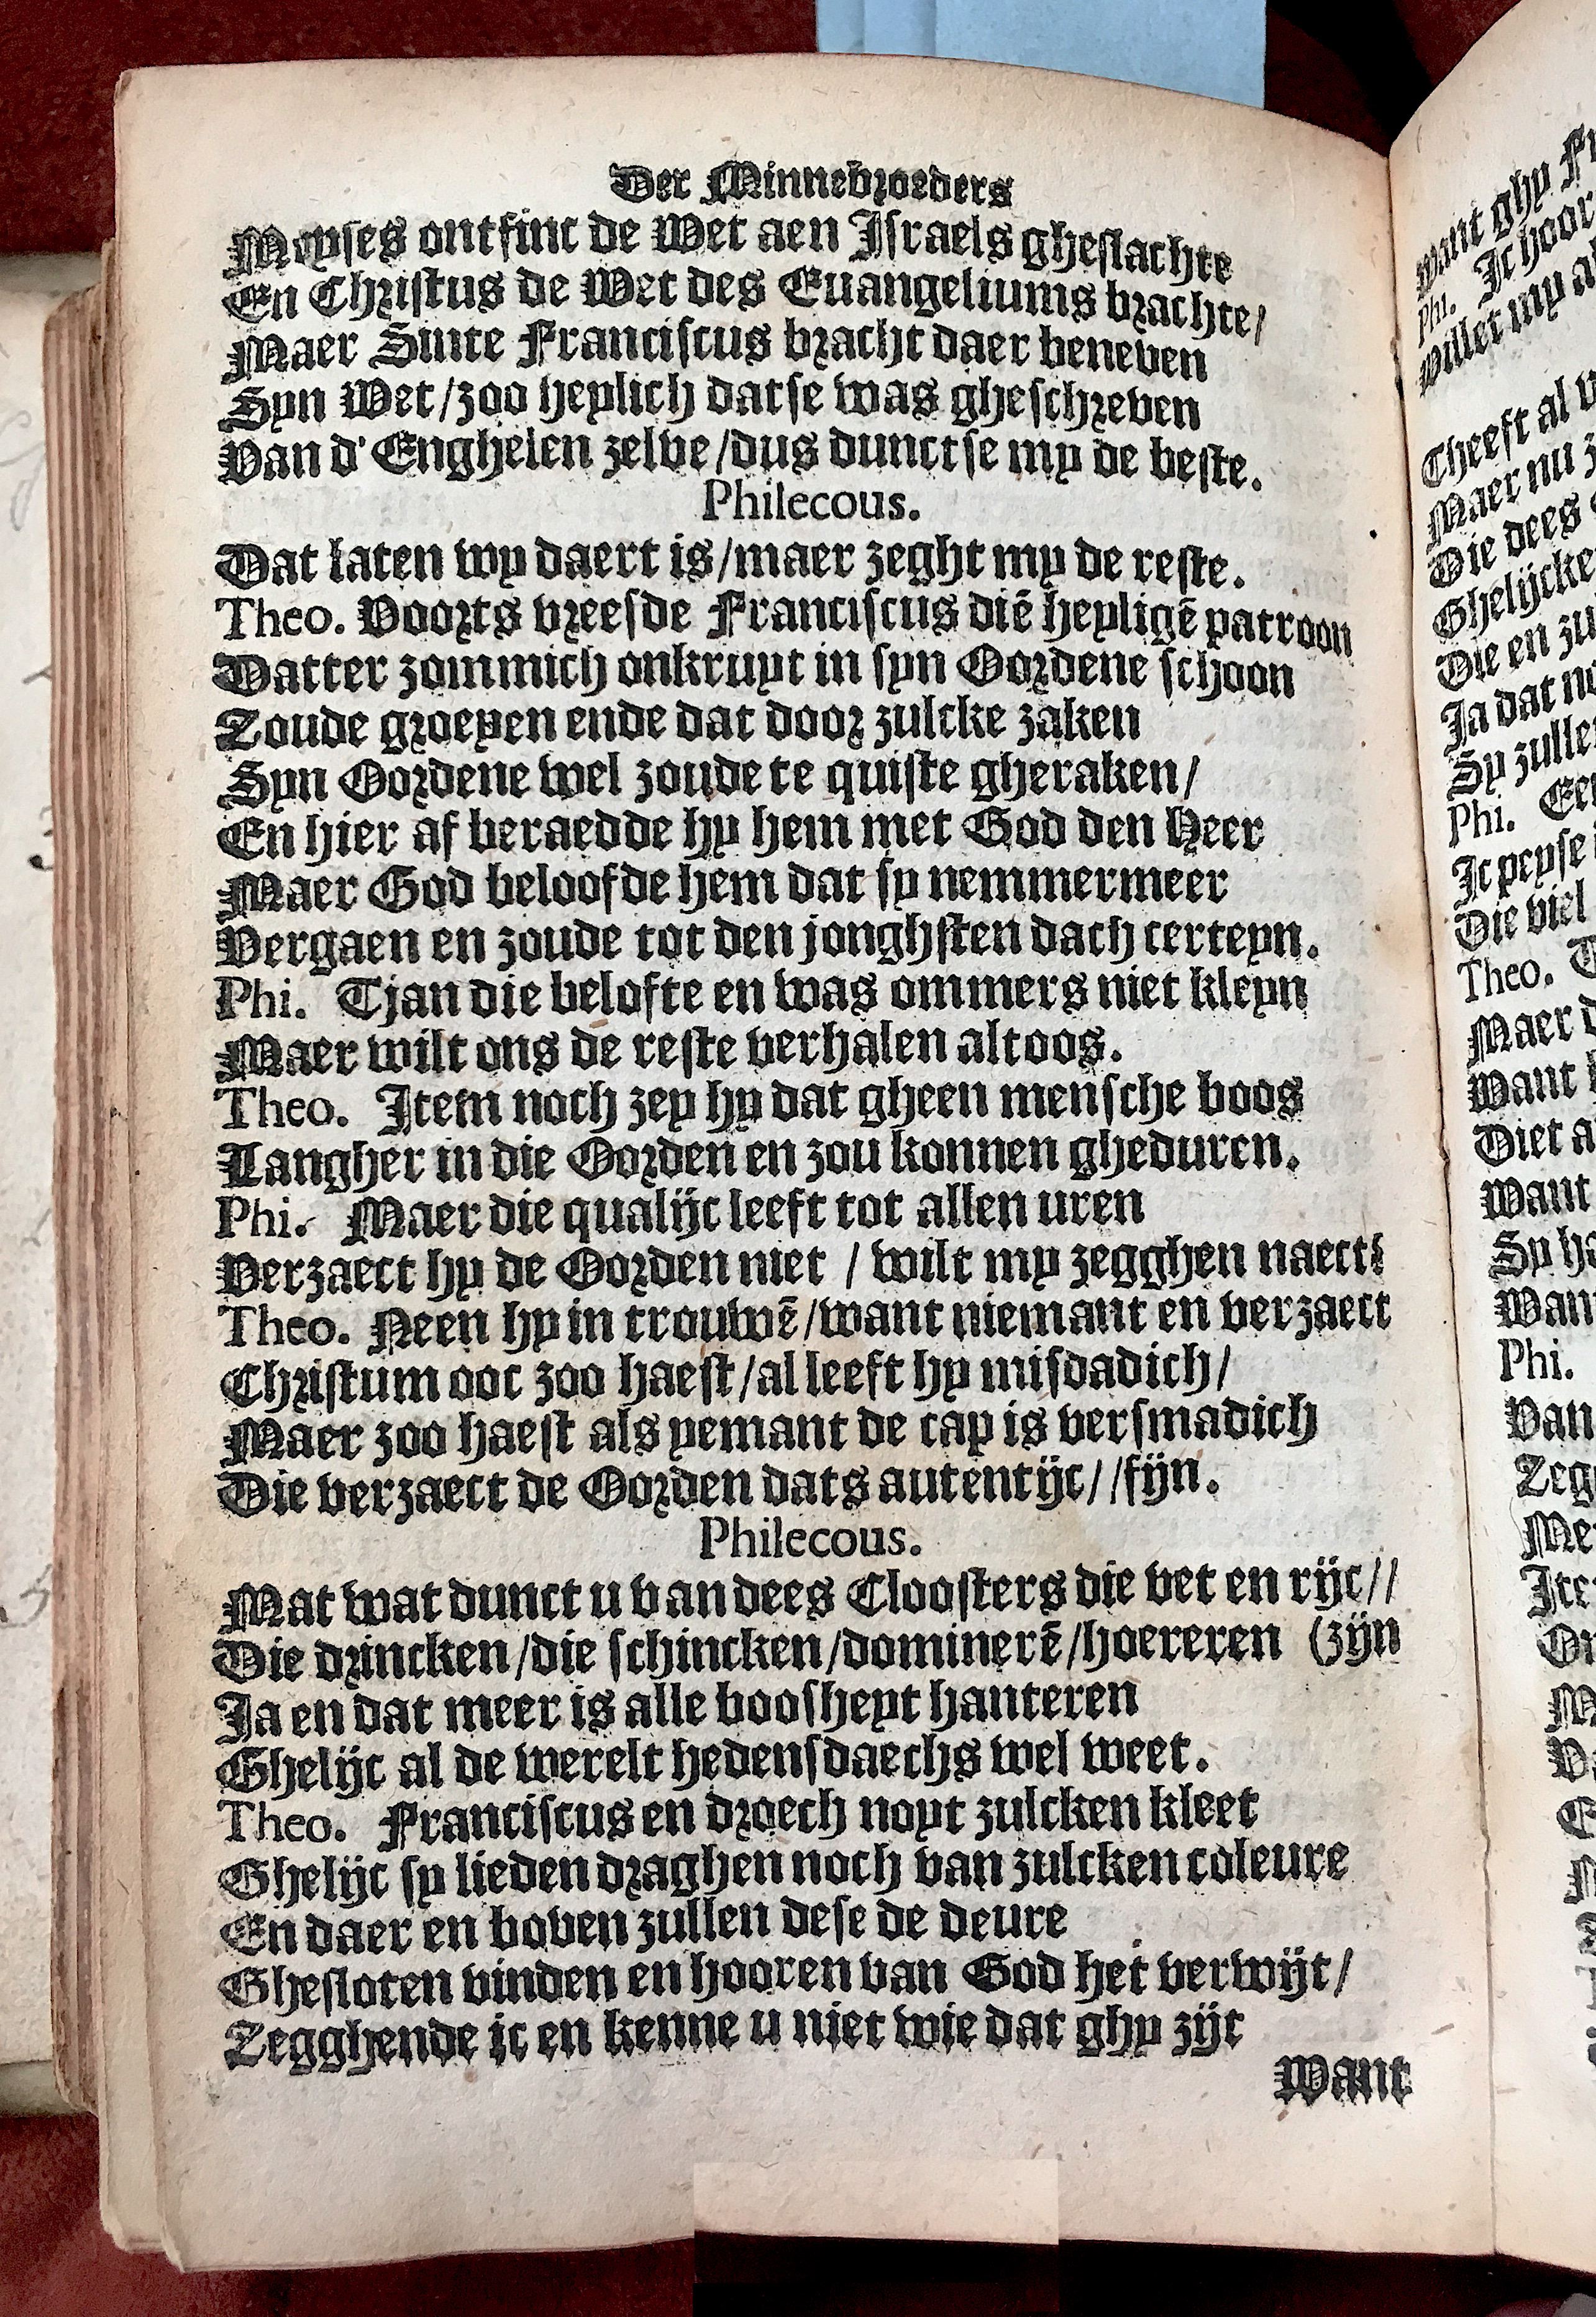 Der Minnebroeders
Moyses ontfinc de Wet aen Israels gheslachte
En Christus de Wet des Euangeliums brachte/
Maer Sinte Franciscus bracht daer beneven
Syn Wet/zoo heylich datse was gheschreven
Van d' Enghelen zelve/dus dunctse my de beste.
Philecous.
Dat laten wy daert is/maer zeght my de reste.
Theo. Voorts vreesde Franciscus diē heyligē patroon
Datter zommich onkruyt in syn Oordene schoon
Zoude groeyen ende dat door zulcke zaken
Syn Oordene wel zoude te quiste gheraken/
En hier af beraedde hy hem met God den Heer
Maer God beloofde hem dat sy nemmermeer
Vergaen en zoude tot den jonghsten dach certeyn.
Phi. Tjan die belofte en was ommers niet kleyn
Maer wilt ons de reste verhalen altoos.
Theo. Item noch zey hy dat gheen mensche boos
Langher in die Oorden en zou konnen gheduren.
Phi. Maer die qualijc leeft tot allen uren
Verzaect hy de Oorden niet / wilt my zegghen naect?
Theo. Neen hy in trouwē/want niemant en verzaect
Christum ooc zoo haest/al leeft hy misdadich/
Maer zoo haest als yemant de cap is versmadich
Die verzaect de Oorden dats autentijc//fijn.
Philecous.
Mat wat dunct u van dees Cloosters die vet en rijc//
Die drincken/die schincken/dominerē/hoereren (zijn
Ja en dat meer is alle boosheyt hanteren
Ghelijc al de werelt hedensdaechs wel weet.
Theo. Franciscus en droech noyt zulcken kleet
Ghelijc sy lieden draghen noch van zulcken coleure
En daer en boven zullen dese de deure
Ghesloten vinden en hooren van God het verwijt/
Zegghende ic en kenne u niet wie dat ghy zijt
Want
want ghy
Phi. Ic hoor
willet my
Cheeft al
Maer nu
Die dees
Ghelijcke
Die en
Ja dat
Sy zulle
Phi.
Ic peyse
Die viel
Theo.
Maer
Want
Diet
Want
Sy
Wan
Phi.
Van
Zeg